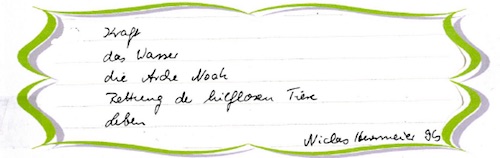 Kraft
das Wasser
die Arche Noah
Rettung der hilflosen Tiere
Leben
Niclas 9b